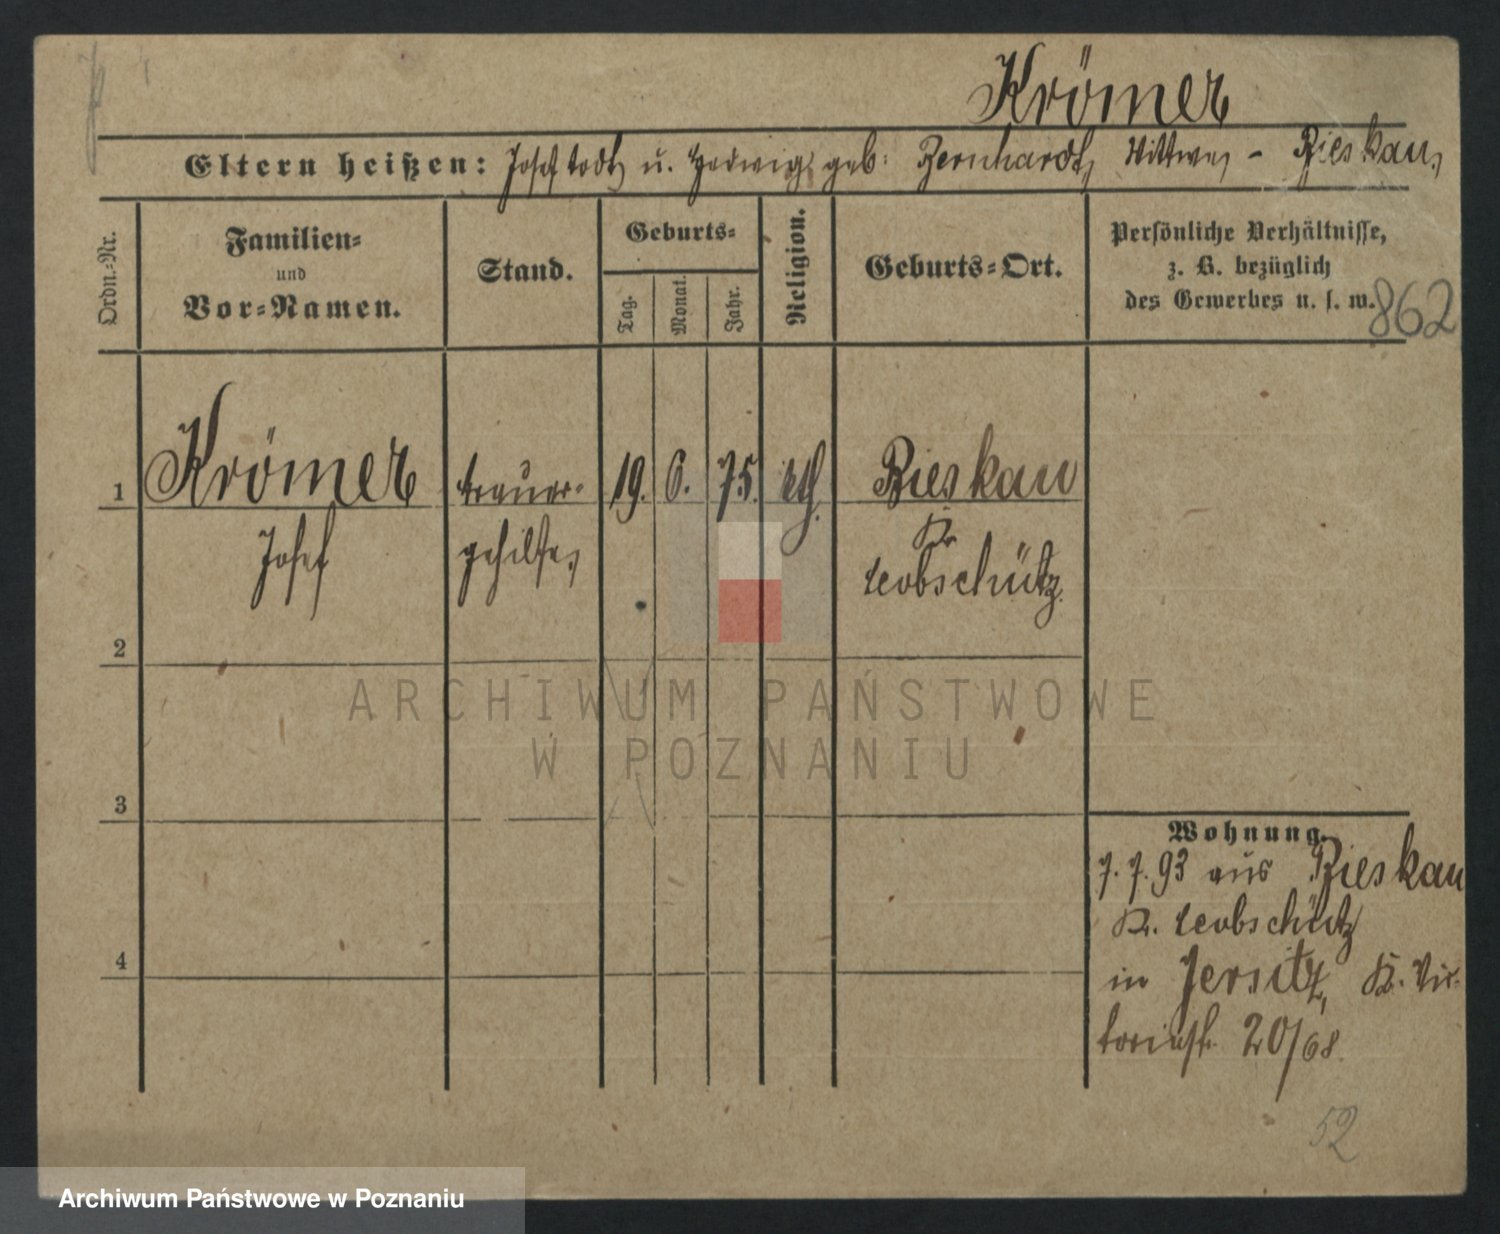 Krömer
Eltern heißen: Josef todt, u. Hedwig geb: Bernhardt, Wittwe, - Bieskau,
Ordn.-Nr.
Familien-
und
Vor-Namen.
Stand.
Geburts-
Tag.
Monat.
Jahr.
Religion.
Geburts-Ort.
Persönliche Verhältnisse,
z. B. bezüglich
des Gewerbes u. s. w.
862
1
Krömer
Josef
brauer-
gehilfe,
19. 6. 75. kth.
Bieskau
Kr.
Leobschütz.
2
3
4
Wohnung.
7. 7. 93 aus Bieskau
Kr. Leobschütz
in Jersitz, Kr. Vic-
toriastr. 20/68.
52
ARCHIWUM PAŃSTWOWE
W POZNANIU
Archiwum Państwowe w Poznaniu